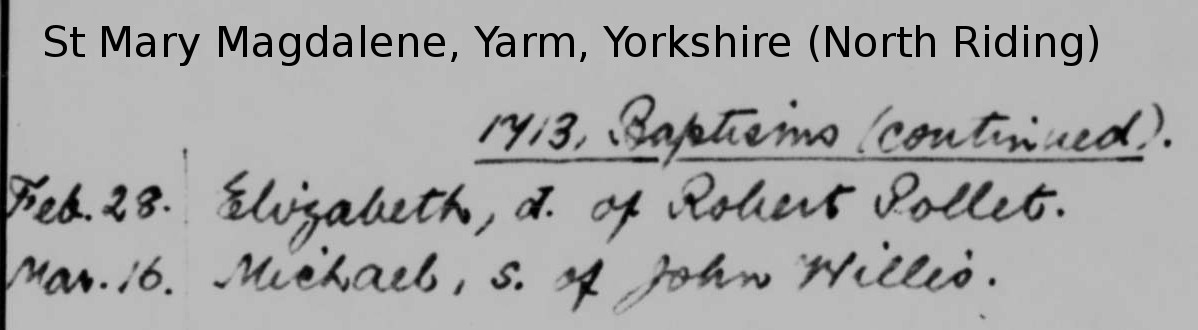 St Mary Magdalene, Yarm, Yorkshire (North Riding)
1713, Baptisms (continued).
Feb. 28. Elizabeth, d. of Robert Pollet.
Mar. 16. Michael, s. of John Willis.